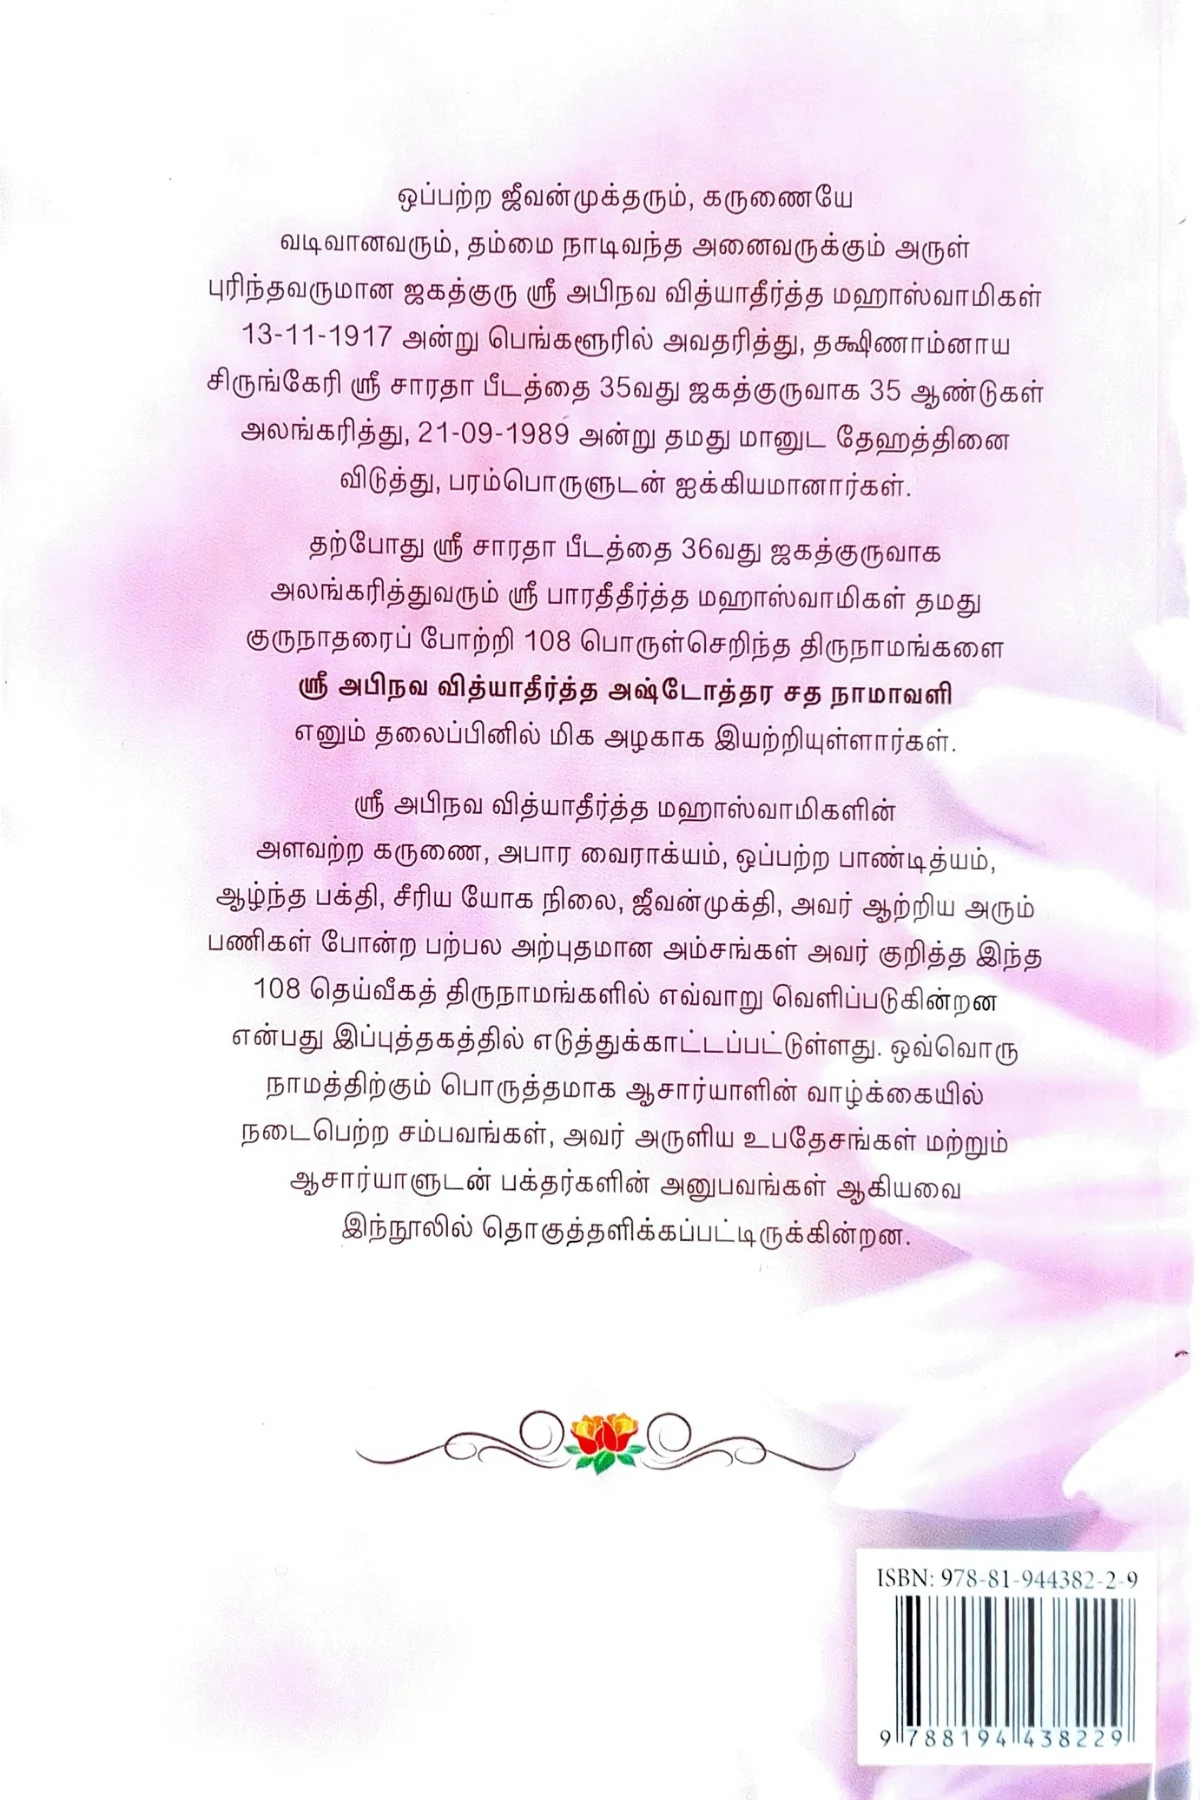 ஒப்பற்ற ஜீவன்முக்தரும், கருணையே
வடிவானவரும், தம்மை நாடிவந்த அனைவருக்கும் அருள்
புரிந்தவருமான ஜகத்குரு ஸ்ரீ அபிநவ வித்யாதீர்த்த மஹாஸ்வாமிகள்
13-11-1917 அன்று பெங்களூரில் அவதரித்து, தக்ஷிணாம்னாய
சிருங்கேரி ஸ்ரீ சாரதா பீடத்தை 35வது ஜகத்குருவாக 35 ஆண்டுகள்
அலங்கரித்து, 21-09-1989 அன்று தமது மானுட தேஹத்தினை
விடுத்து, பரம்பொருளுடன் ஐக்கியமானார்கள்.
தற்போது ஸ்ரீ சாரதா பீடத்தை 36வது ஜகத்குருவாக
அலங்கரித்துவரும் ஸ்ரீ பாரதீதீர்த்த மஹாஸ்வாமிகள் தமது
குருநாதரைப் போற்றி 108 பொருள்செறிந்த திருநாமங்களை
ஸ்ரீ அபிநவ வித்யாதீர்த்த அஷ்டோத்தர சத நாமாவளி
எனும் தலைப்பினில் மிக அழகாக இயற்றியுள்ளார்கள்.
ஸ்ரீ அபிநவ வித்யாதீர்த்த மஹாஸ்வாமிகளின்
அளவற்ற கருணை, அபார வைராக்யம், ஒப்பற்ற பாண்டித்யம்,
ஆழ்ந்த பக்தி, சீரிய யோக நிலை, ஜீவன்முக்தி, அவர் ஆற்றிய அரும்
பணிகள் போன்ற பற்பல அற்புதமான அம்சங்கள் அவர் குறித்த இந்த
108 தெய்வீகத் திருநாமங்களில் எவ்வாறு வெளிப்படுகின்றன
என்பது இப்புத்தகத்தில் எடுத்துக்காட்டப்பட்டுள்ளது. ஒவ்வொரு
நாமத்திற்கும் பொருத்தமாக ஆசார்யாளின் வாழ்க்கையில்
நடைபெற்ற சம்பவங்கள், அவர் அருளிய உபதேசங்கள் மற்றும்
ஆசார்யாளுடன் பக்தர்களின் அனுபவங்கள் ஆகியவை
இந்நூலில் தொகுத்தளிக்கப்பட்டிருக்கின்றன.
ISBN: 978-81-944382-2-9
9 788194 438229